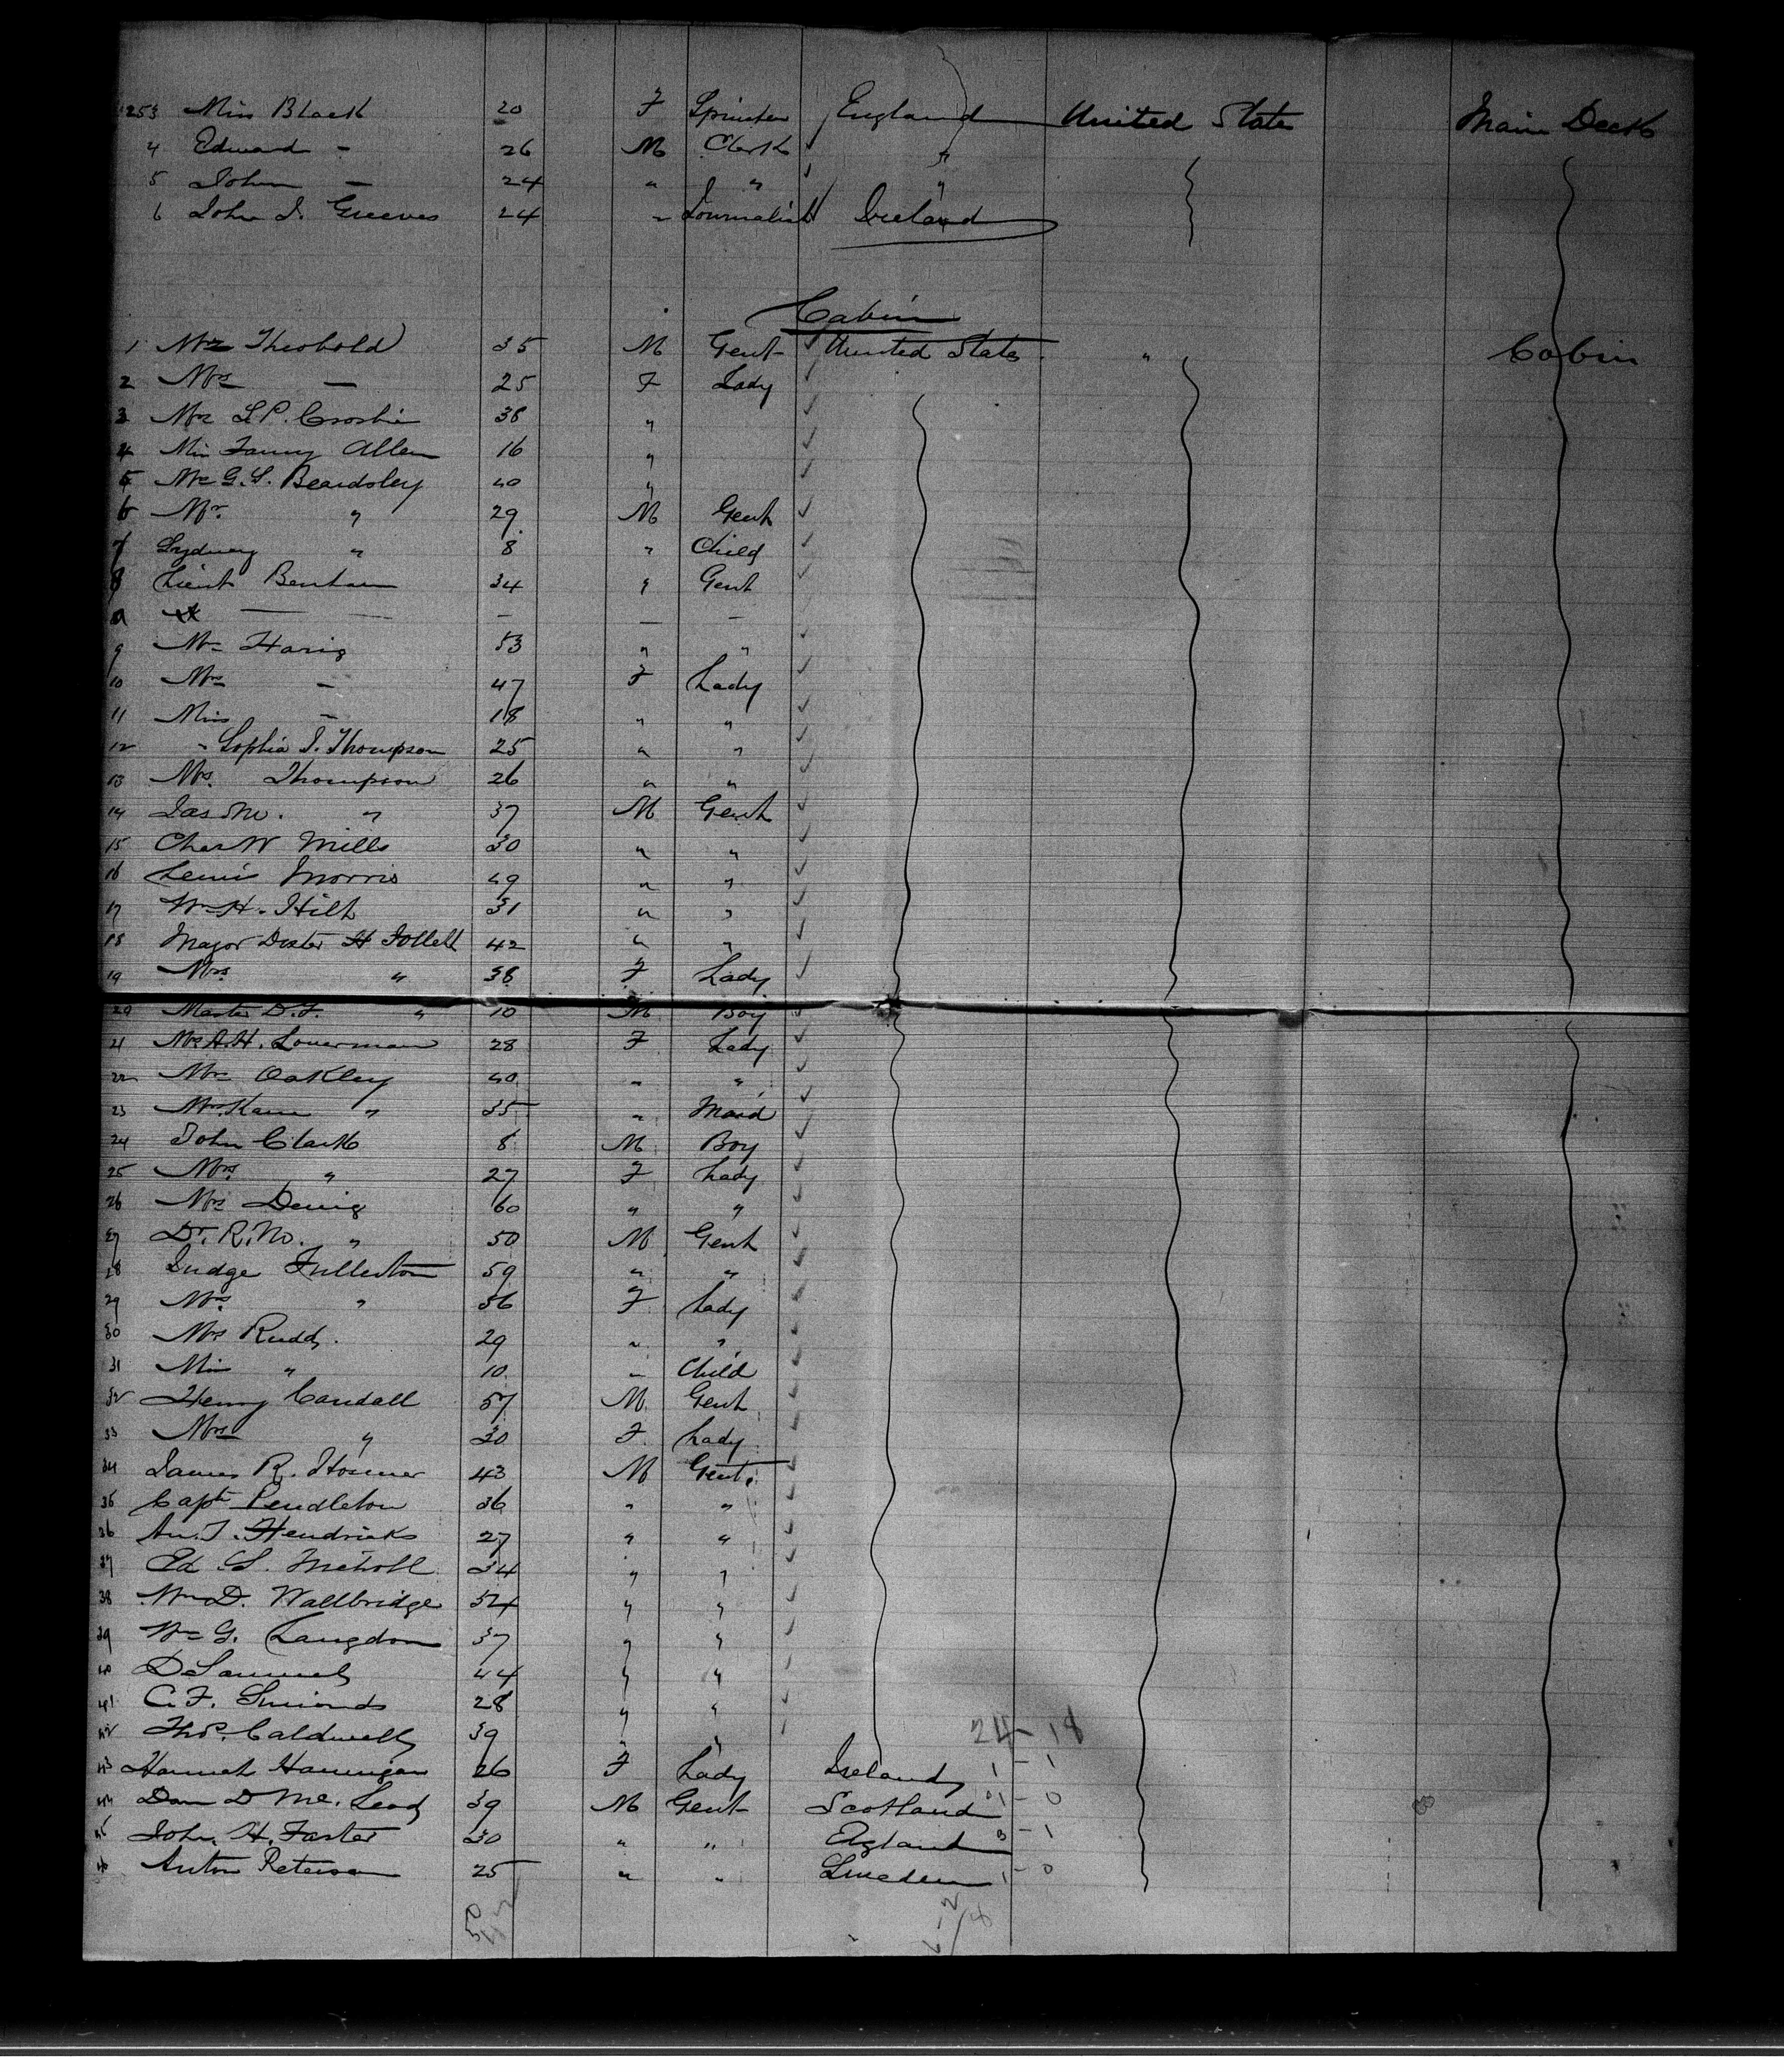 1253 Miss Black 20 F Spinster England United States Main Deck
4 Edward - 26 M Clerk "
5 John - 24 " " "
6 John J. Greeves 24 " Journalist Ireland
Cabin
1 Mr Theobold 35 M Gent United States " Cabin
2 Mrs - 25 F Lady
3 Mrs L.P. Crosbie 38 "
4 Miss Fanny Allen 16 "
5 Mrs G.S. Beardsley 40 "
6 Mr. " 29 M Gent
7 Sydney " 8 " Child
8 Lieut Benham 34 " Gent
9 Mr Harig 53 " "
10 Mrs - 47 F Lady
11 Miss - 18 " "
12 " Sophia J. Thompson 25 " "
13 Mrs. Thompson 26 " "
14 Jas M. " 37 M Gent
15 Chas W Mills 30 " "
16 Lewis Morris 49 " "
17 Wm H. Hilt 31 " "
18 Major Dexter H Follett 42 " "
19 Mrs. " 38 F Lady
20 Master D.F. " 10 M Boy
21 Mrs A.H. Louerman 28 F Lady
22 Mrs Oakley 40 " "
23 Mrs Kane " 35 " Maid
24 John Clark 8 M Boy
25 Mrs " 27 F Lady
26 Mrs Denig 60 " "
27 Dr. R.M. " 50 M Gent
28 Judge Fullerton 59 " "
29 Mrs " 56 F Lady
30 Mrs Rudd. 29 " "
31 Miss " 10 " Child
32 Henry Caudall 57 M Gent
33 Mrs " 30 F Lady
34 James R. Hosmer 43 M Gent.
35 Capt Pendleton 36 " "
36 An. J. Hendricks 27 " "
37 Ed S. Metroll 34 " "
38 Wm D. Wallbridge 54 " "
39 Wm G. Langdon 37 " "
40 D Samuels 44 " "
41 C. F. Simonds 28 " "
42 Thos. Caldwell 39 " " 24 - 18
43 Hannah Hannigan 26 F Lady Ireland 1 - 1
44 Dan D Mc. Leod 39 M Gent Scotland 1 - 0
45 John H. Foster 30 " " England 3 - 1
46 Anton Peterson 25 " " Sweden 1 - 0